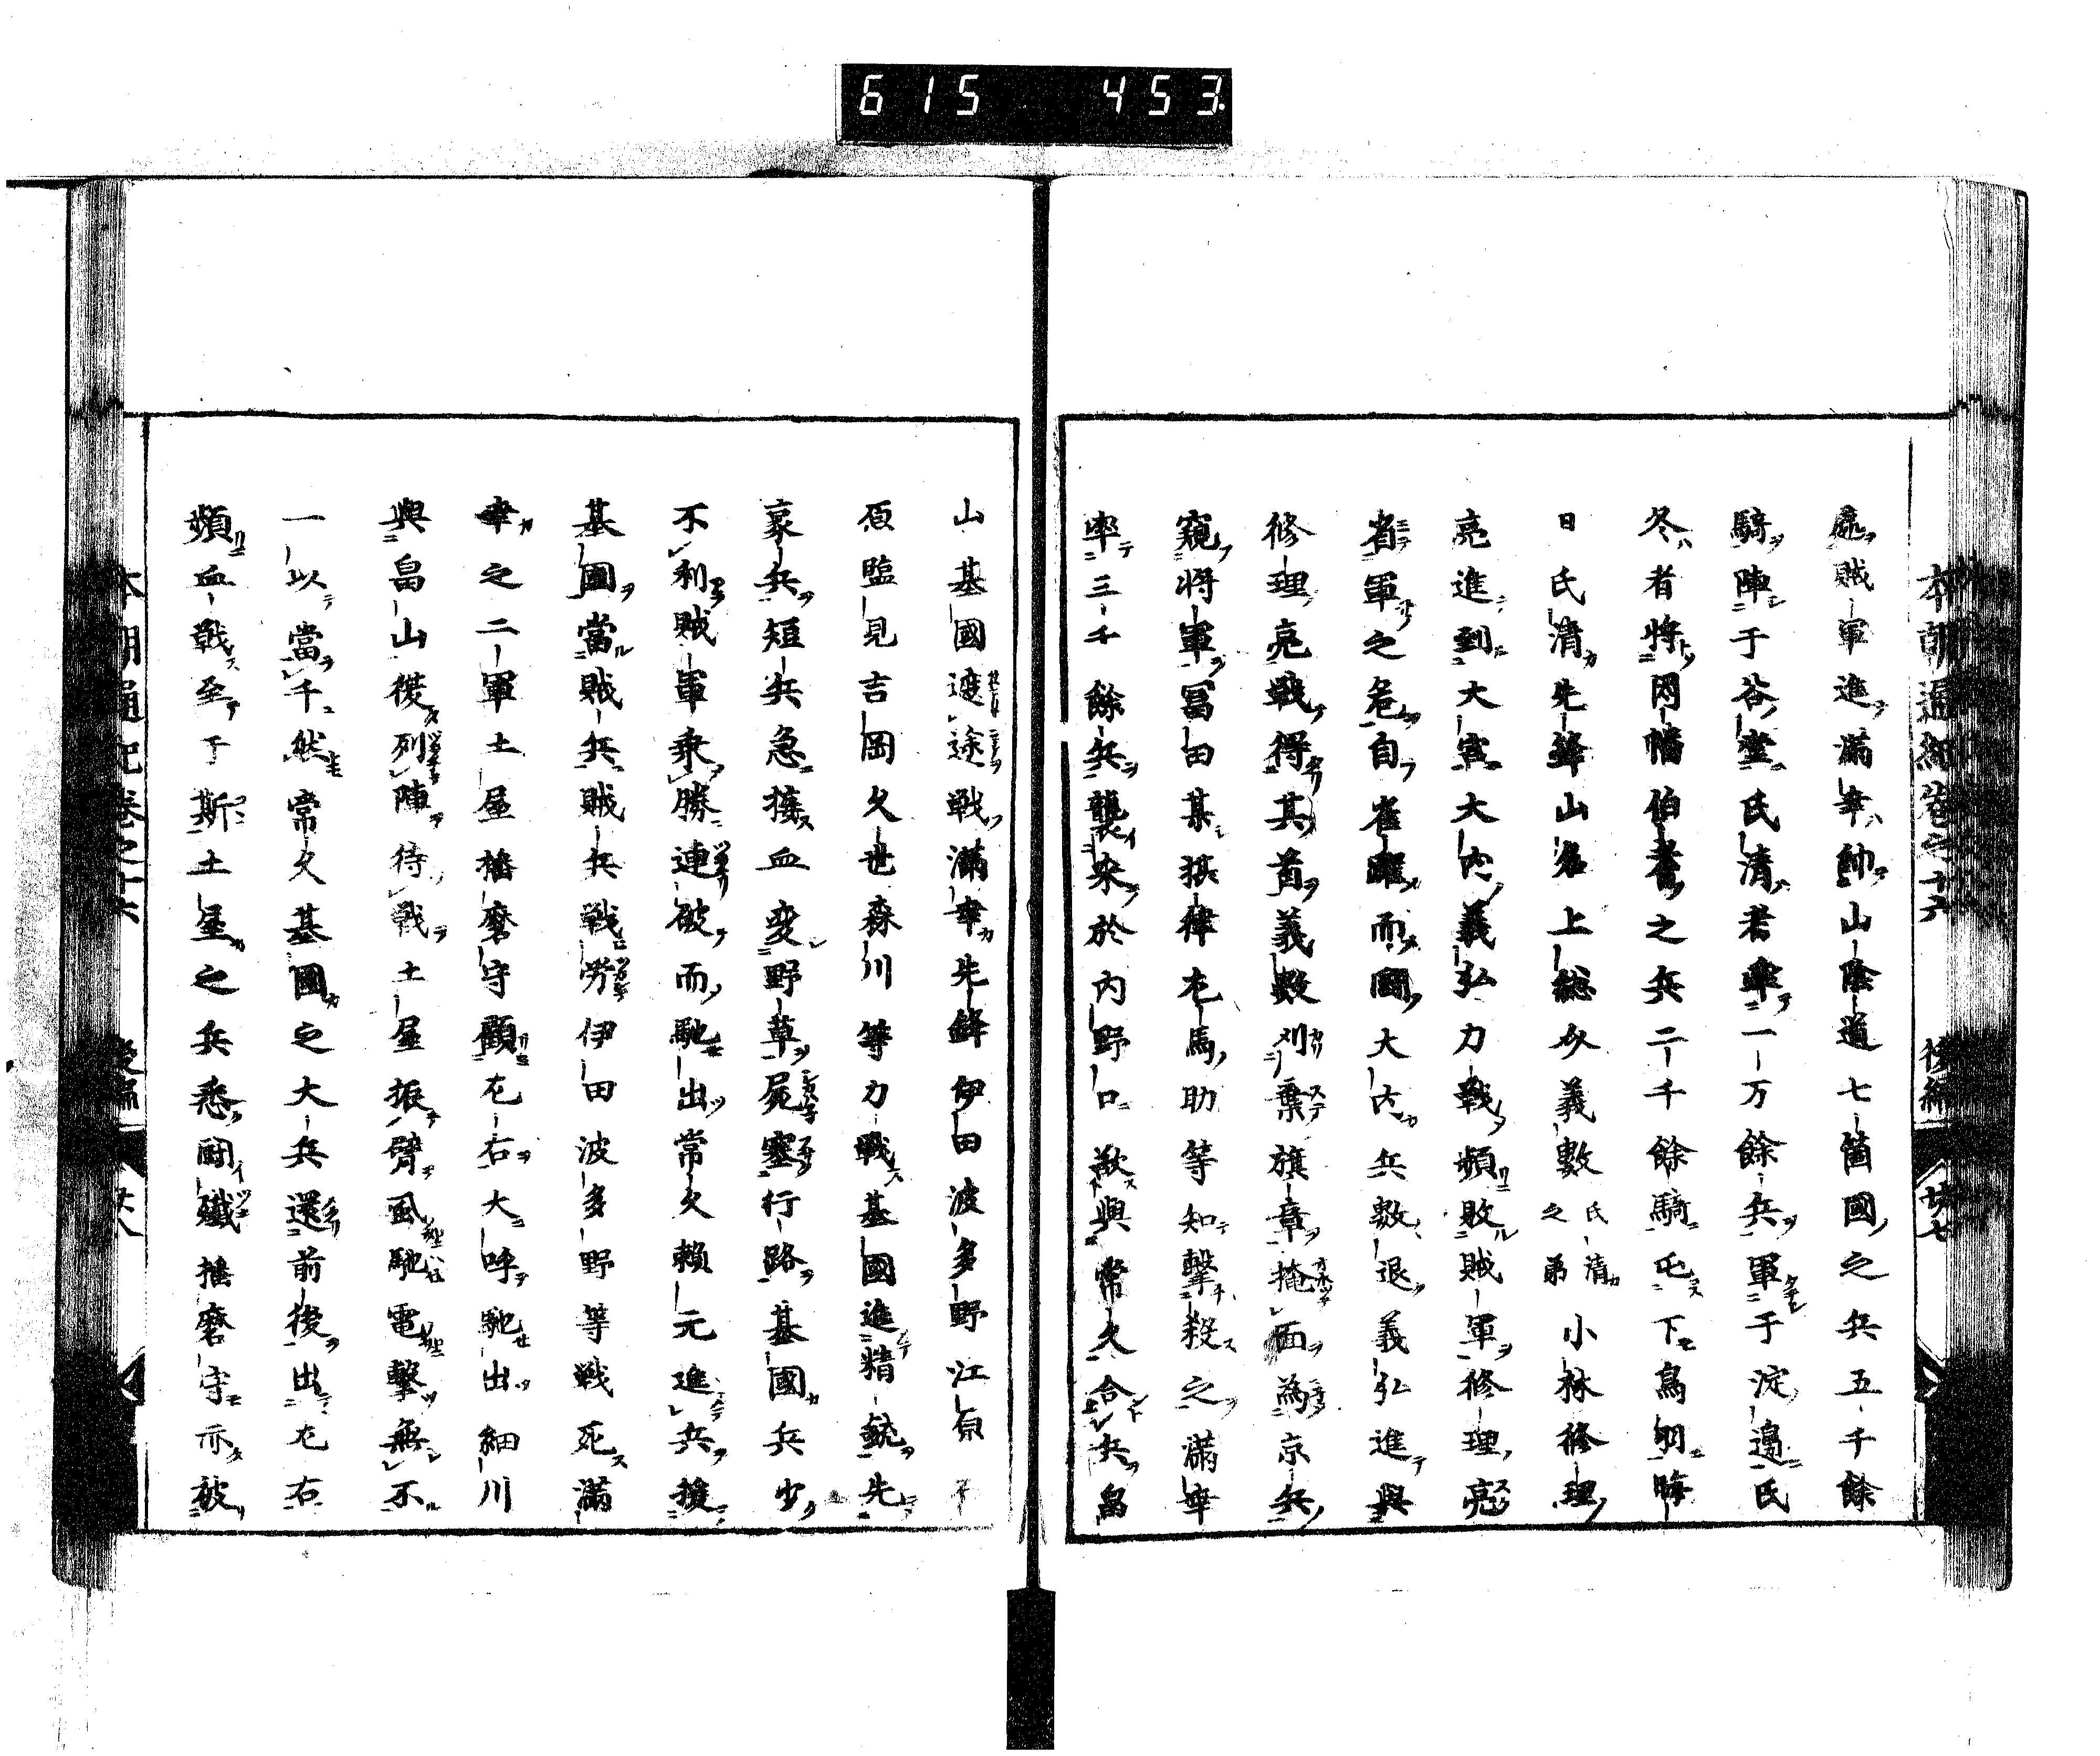 615 453
本朝通紀卷之十六 後編 廿七
賊軍進滿幸帥山陰道七箇國之兵五千餘
騎陣于谷堂氏清者率一万餘兵軍于淀邉氏
冬者將因幡伯耆之兵二千餘騎屯下鳥羽晦
日氏清先鋒山名上総介義數氏清之弟小林修理
亮進到大宮大内義弘力戰頻敗賊軍修理亮
省軍之危自雀躍而闘大内兵數退義弘進與
修理亮戰得其首義數刈棄旗章掩面為京兵
窺將軍冨田某摂律左馬助等知擊殺之滿幸
率三千餘兵襲來於内野口欲與常久合兵畠
山基國遮途戦滿幸先鋒伊田波多野江原
原監見吉岡久世森川等力戰基國進精銳先
豪兵短兵急接血変野草屍塞行路基國兵少
不利賊軍乘勝連破而馳出常久賴元進兵援
基國當賊兵賊兵戦労伊田波多野等戦死滿
幸之二軍土屋播磨守顧左右大呼馳出細川
與畠山後列陣待戰土屋振臂風馳電擊無不
一以當千然常久基國之大兵還前後出左右
頻血戰至于斯土屋之兵悉闘殲播磨守亦被
本朝通紀卷之十六 後編 廿八